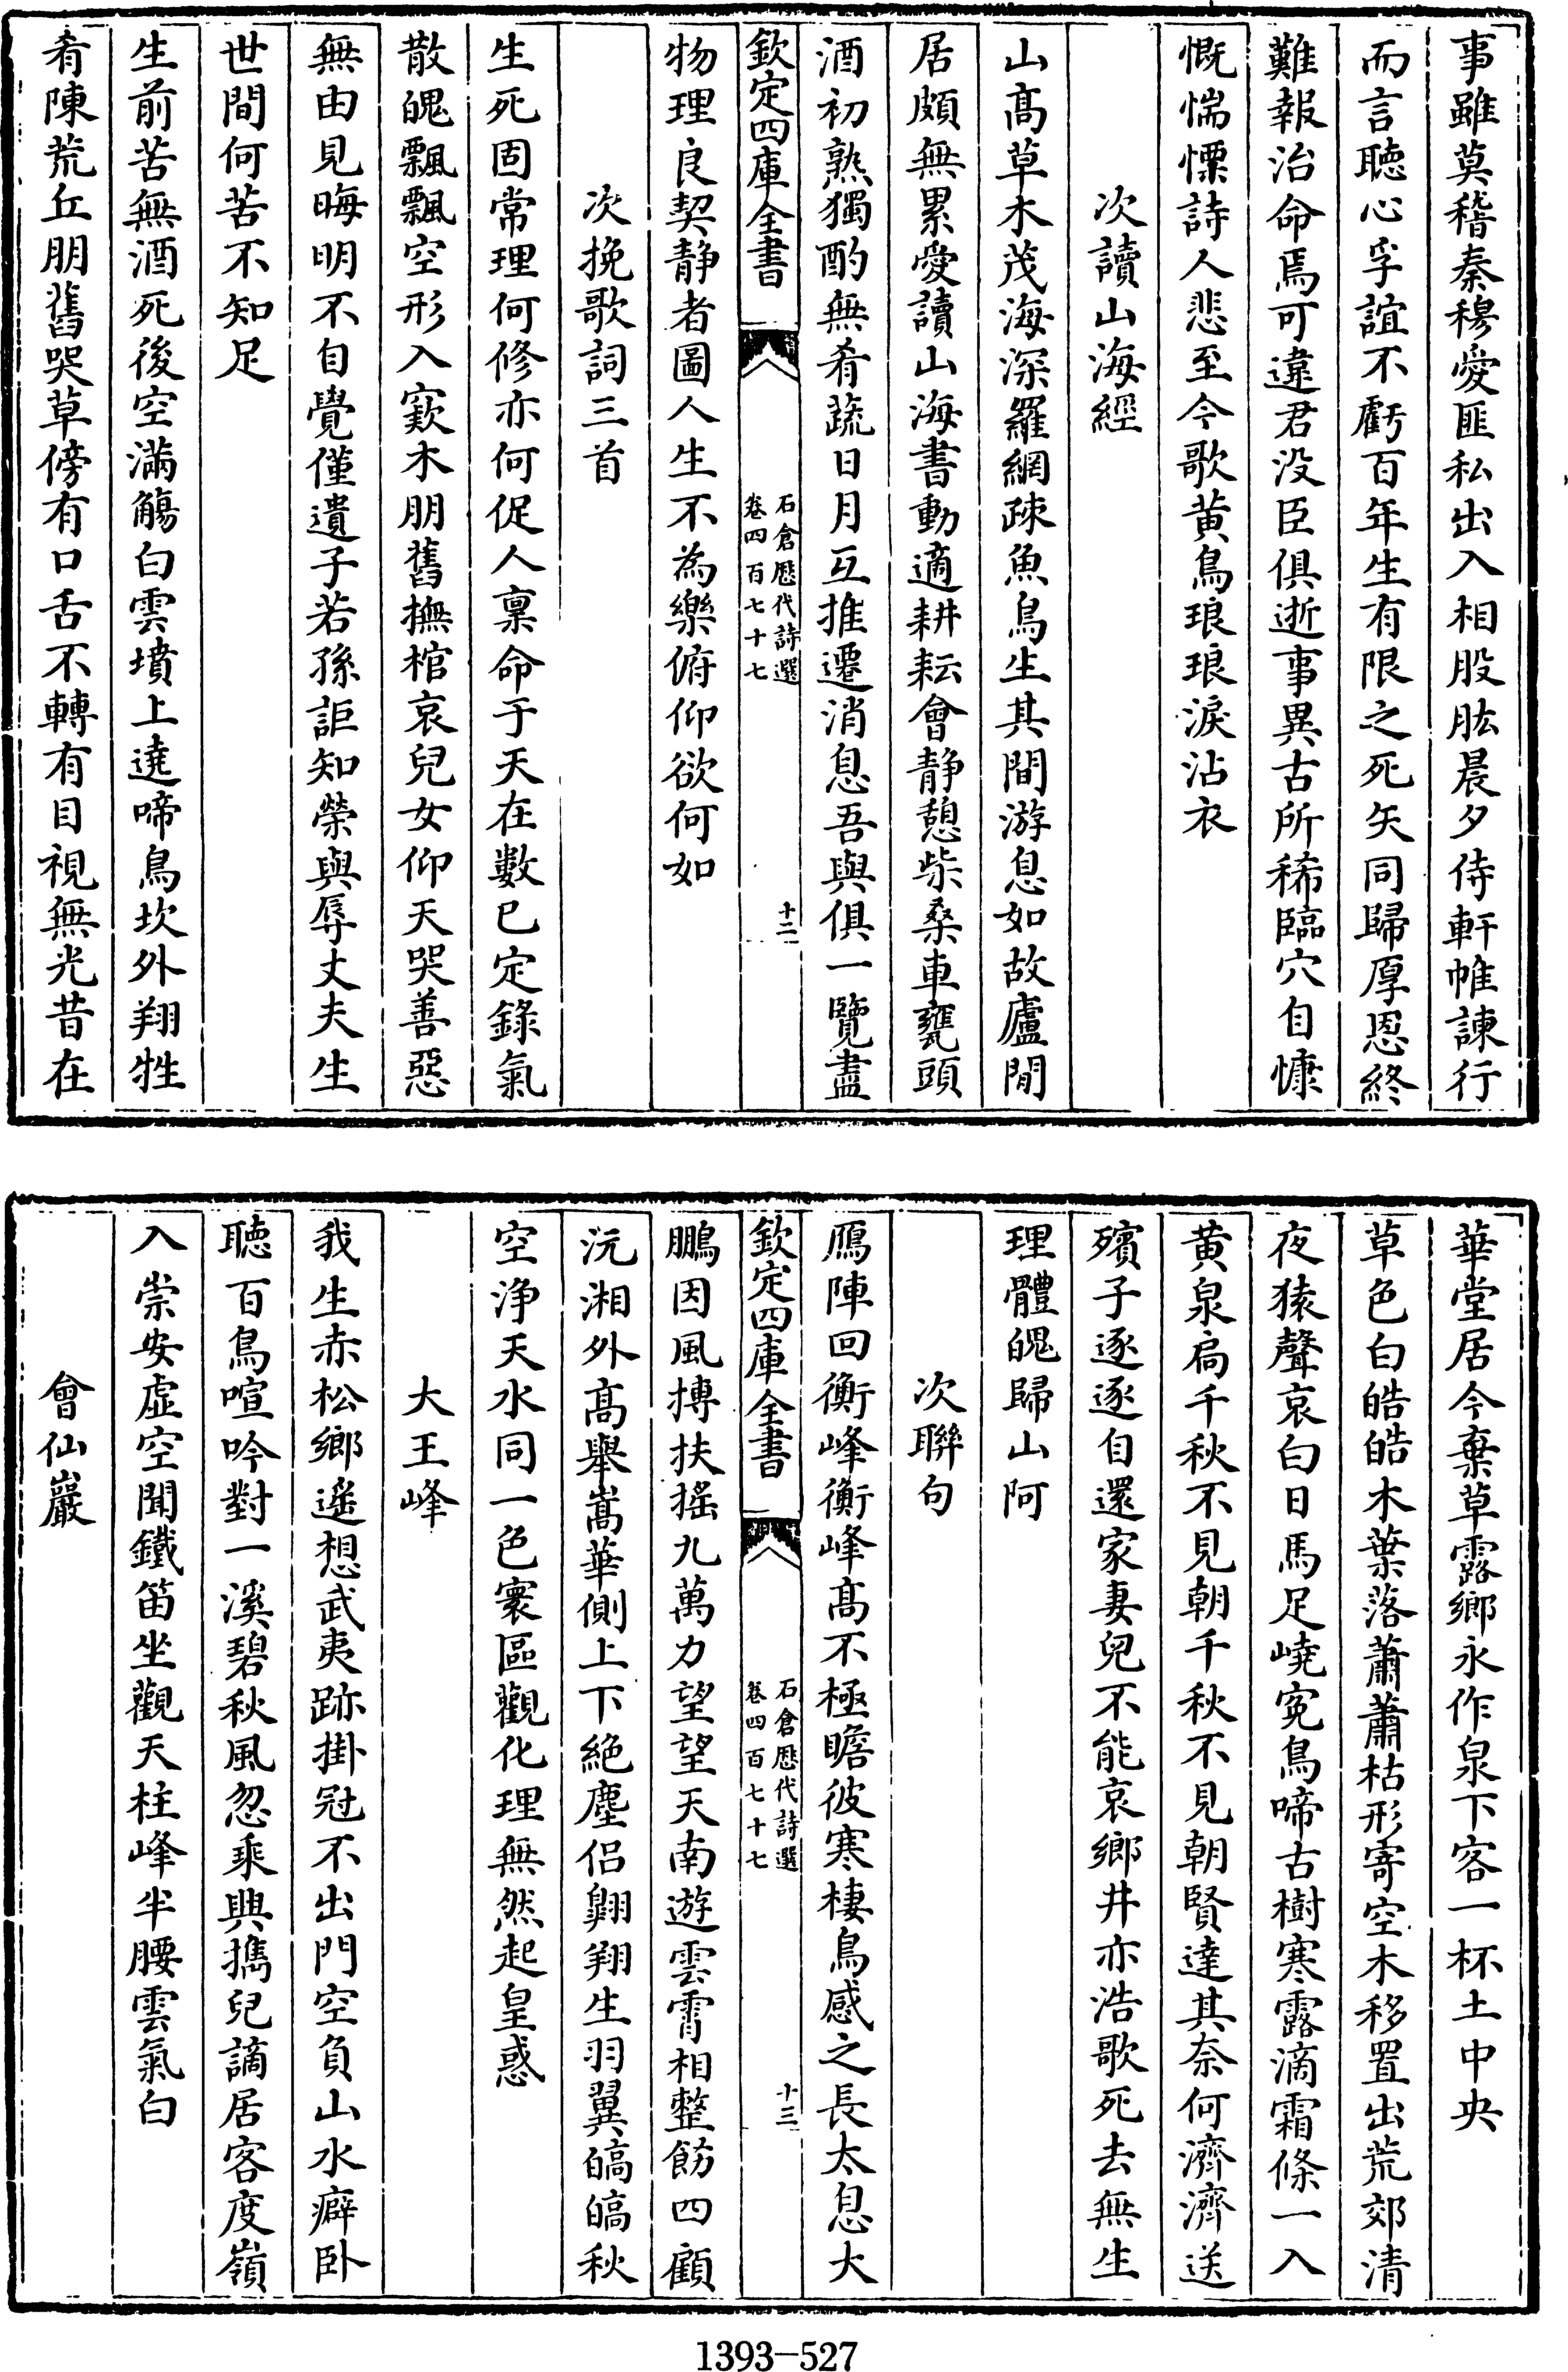 事雖莫稽秦穆愛匪私出入相股肱晨夕侍軒帷諫行
而言聽心孚誼不虧百年生有限之死矢同歸厚恩終
難報治命焉可違君没臣俱逝事異古所稀臨穴自慷
慨惴慄詩人悲至今歌黄鳥琅琅淚沾衣
次讀山海經
山髙草木茂海深羅網疎魚鳥生其間游息如故廬閒
居頗無累愛讀山海書動適耕耘會靜憩柴桑車甕頭
酒初熟獨酌無肴蔬日月互推遷消息吾與俱一覽盡
欽定四庫全書
石倉歴代詩選
卷四百七十七
十二
物理良契静者圖人生不為樂俯仰欲何如
次挽歌詞三首
生死固常理何修亦何促人稟命于天在數已定錄氣
散魄飄飄空形入窾木朋舊撫棺哀兒女仰天哭善惡
無由見晦明不自覺僅遺子若孫詎知榮與辱丈夫生
世間何苦不知足
生前苦無酒死後空滿觴白雲墳上遶啼鳥坎外翔牲
肴陳荒丘朋舊哭草傍有口舌不轉有目視無光昔在
華堂居今棄草露鄉永作泉下客一杯土中央
草色白皓皓木葉落蕭蕭枯形寄空木移置出荒郊清
夜猿聲哀白日馬足嶢寃鳥啼古樹寒露滴霜條一入
黄泉扃千秋不見朝千秋不見朝賢達其奈何濟濟送
殯子逐逐自還家妻兒不能哀鄉井亦浩歌死去無生
理體魄歸山阿
次聯句
鴈陣回衡峰衡峰髙不極瞻彼寒棲鳥感之長太息大
欽定四庫全書
石倉歴代詩選
卷四百七十七
十三
鵬因風搏扶摇九萬力望望天南遊雲霄相整飭四顧
沅湘外髙舉嵩華側上下絶塵侣翺翔生羽翼皜皜秋
空浄天水同一色寰區觀化理無然起皇惑
大王峰
我生赤松鄉遥想武夷跡掛冠不出門空負山水癖卧
聽百鳥喧吟對一溪碧秋風忽乘興擕兒謫居客度嶺
入崇安虚空聞鐵笛坐觀天柱峰半腰雲氣白
會仙巖
1393-527